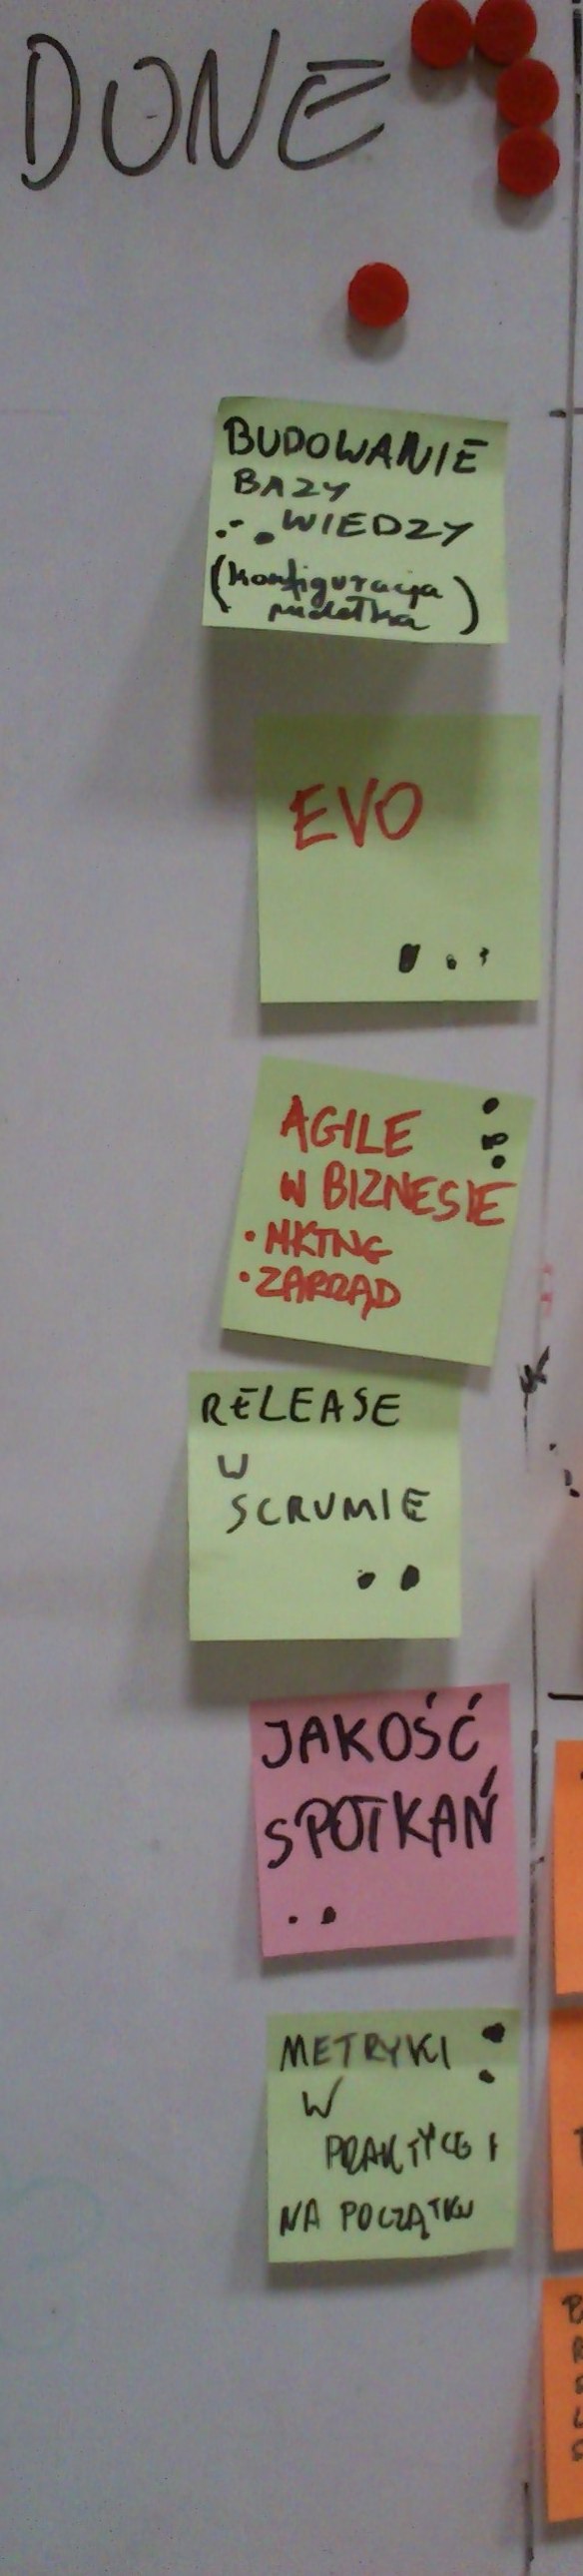 DONE
BUDOWANIE
BAZY
WIEDZY
(konfiguracja
pudełka)
EVO
AGILE
W BIZNESIE
• MKTNG
• ZARZĄD
RELEASE
W
SCRUMIE
JAKOŚĆ
SPOTKAŃ
METRYKI
W
PRAKTYCE I
NA POCZĄTKU